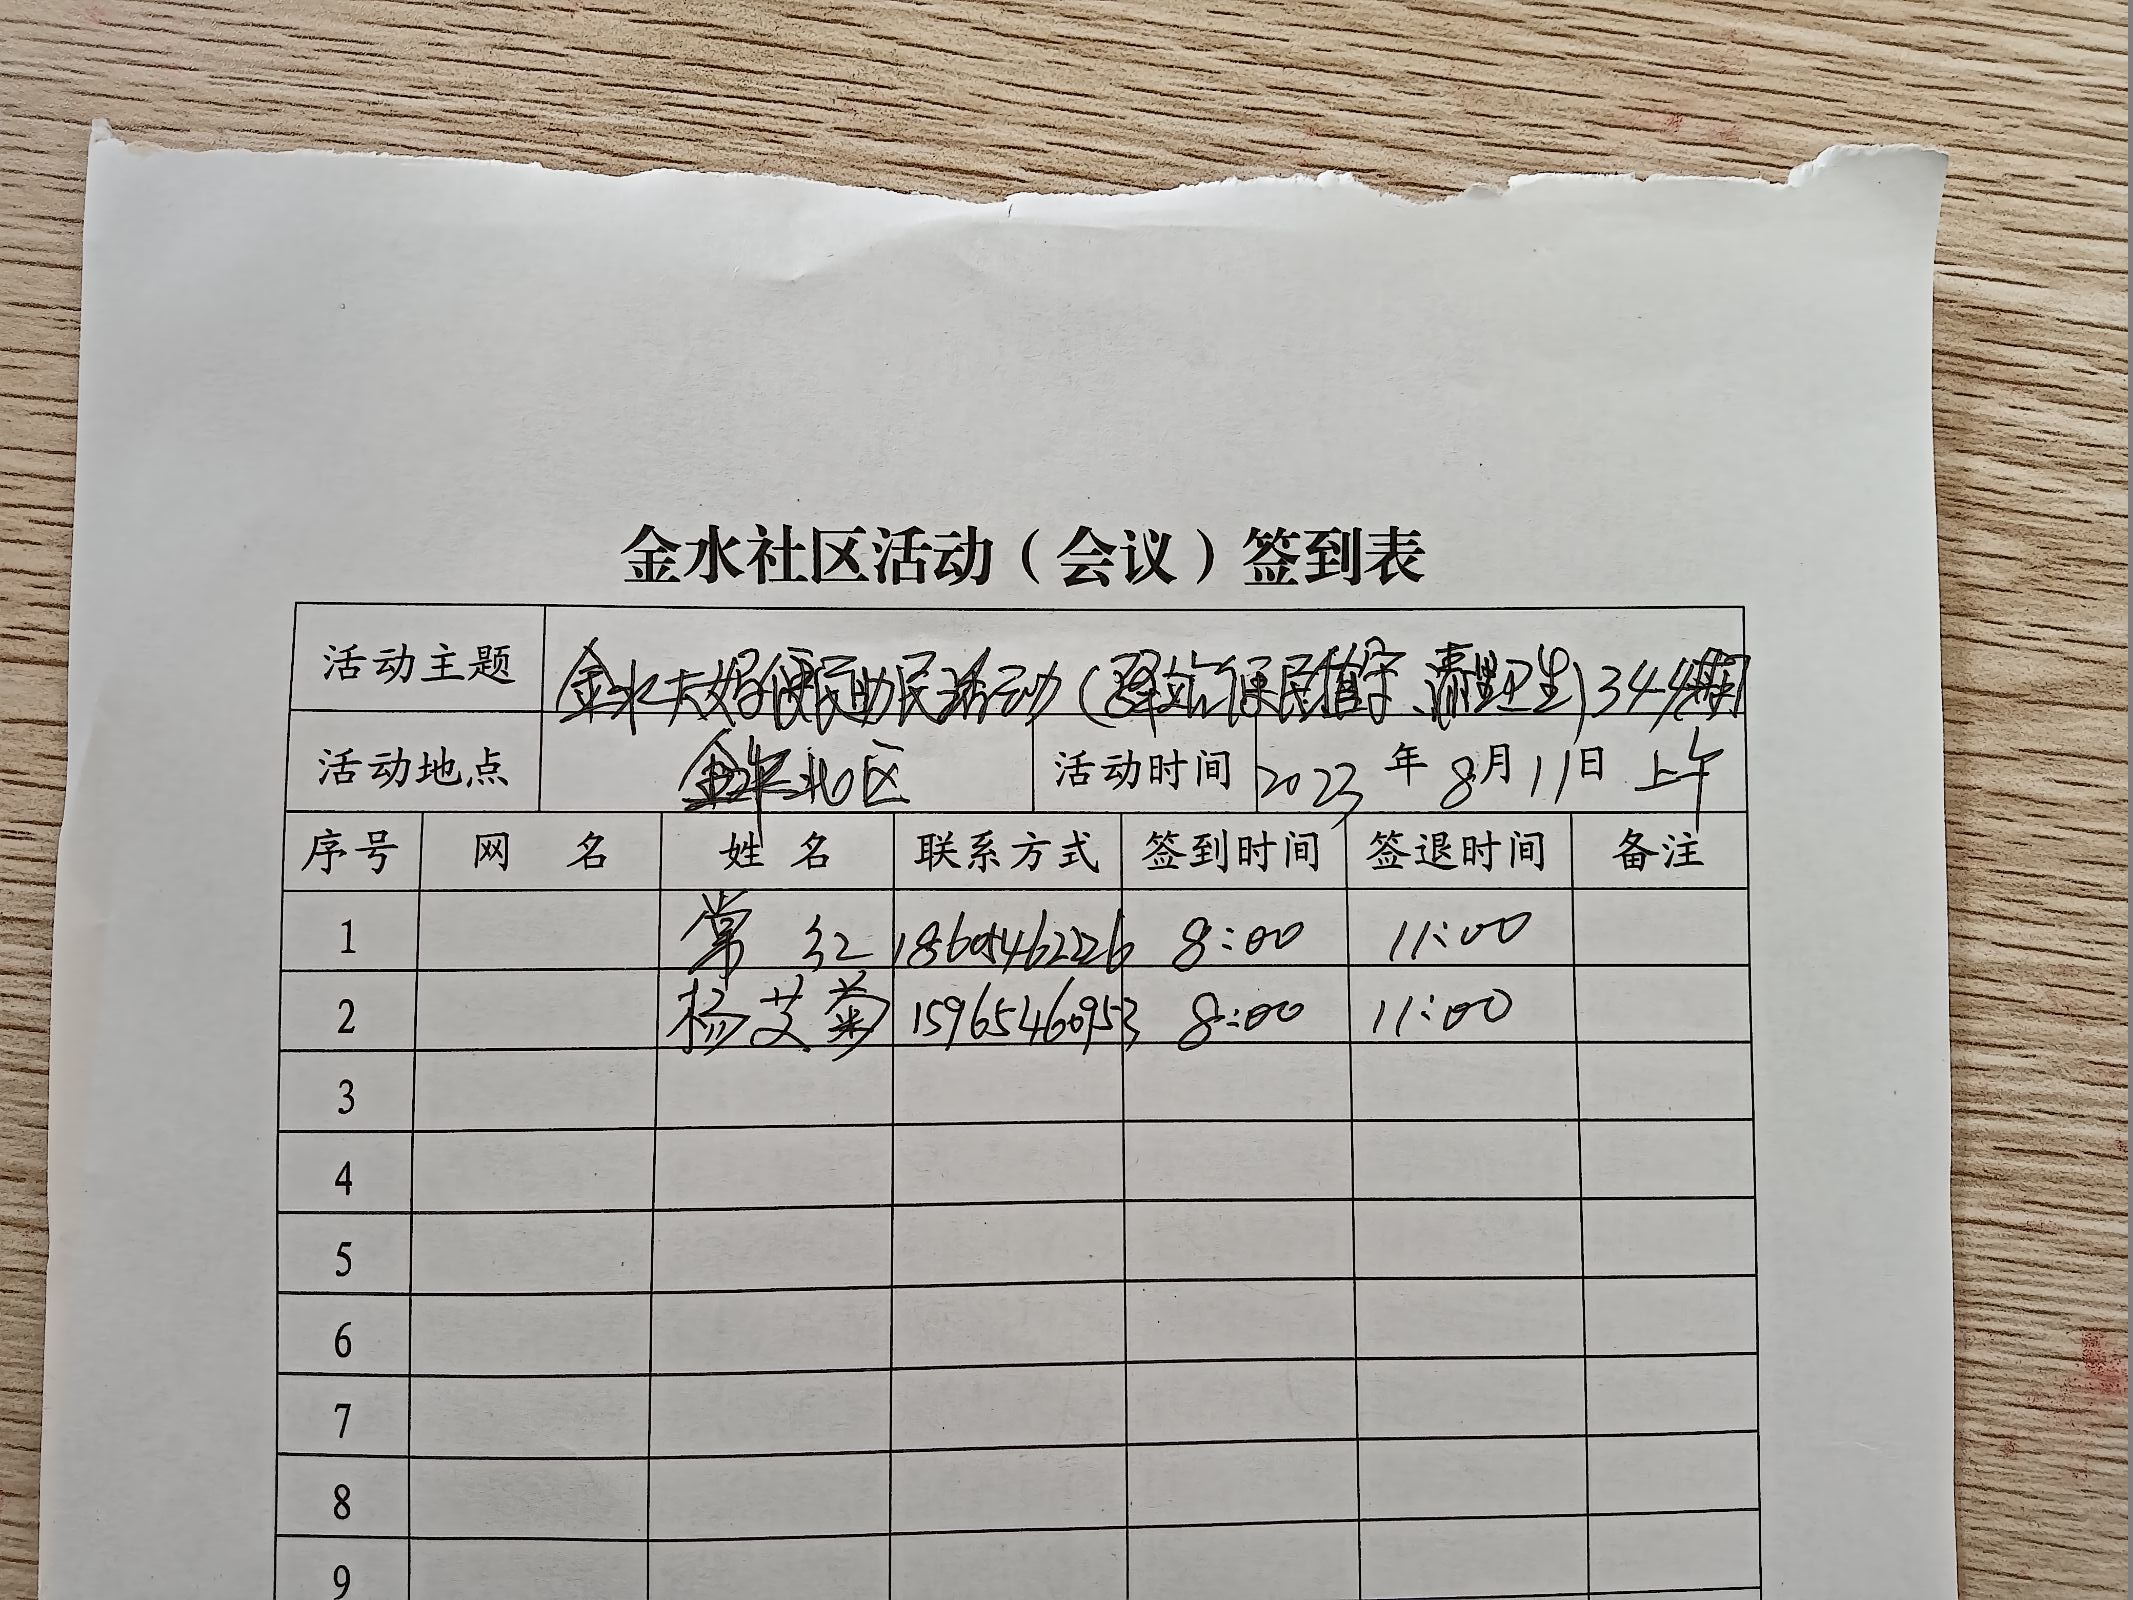 金水社区活动（会议）签到表
活动主题 金水大妈便民助民活动（驿站便民值守、清理卫生）344期
活动地点 北区 活动时间 2023 年 8月 11日 上午
序号 网 名 姓 名 联系方式 签到时间 签退时间 备注
1 常 红 8:00 11:00
2 杨艾菊 15965460953 8:00 11:00
3
4
5
6
7
8
9